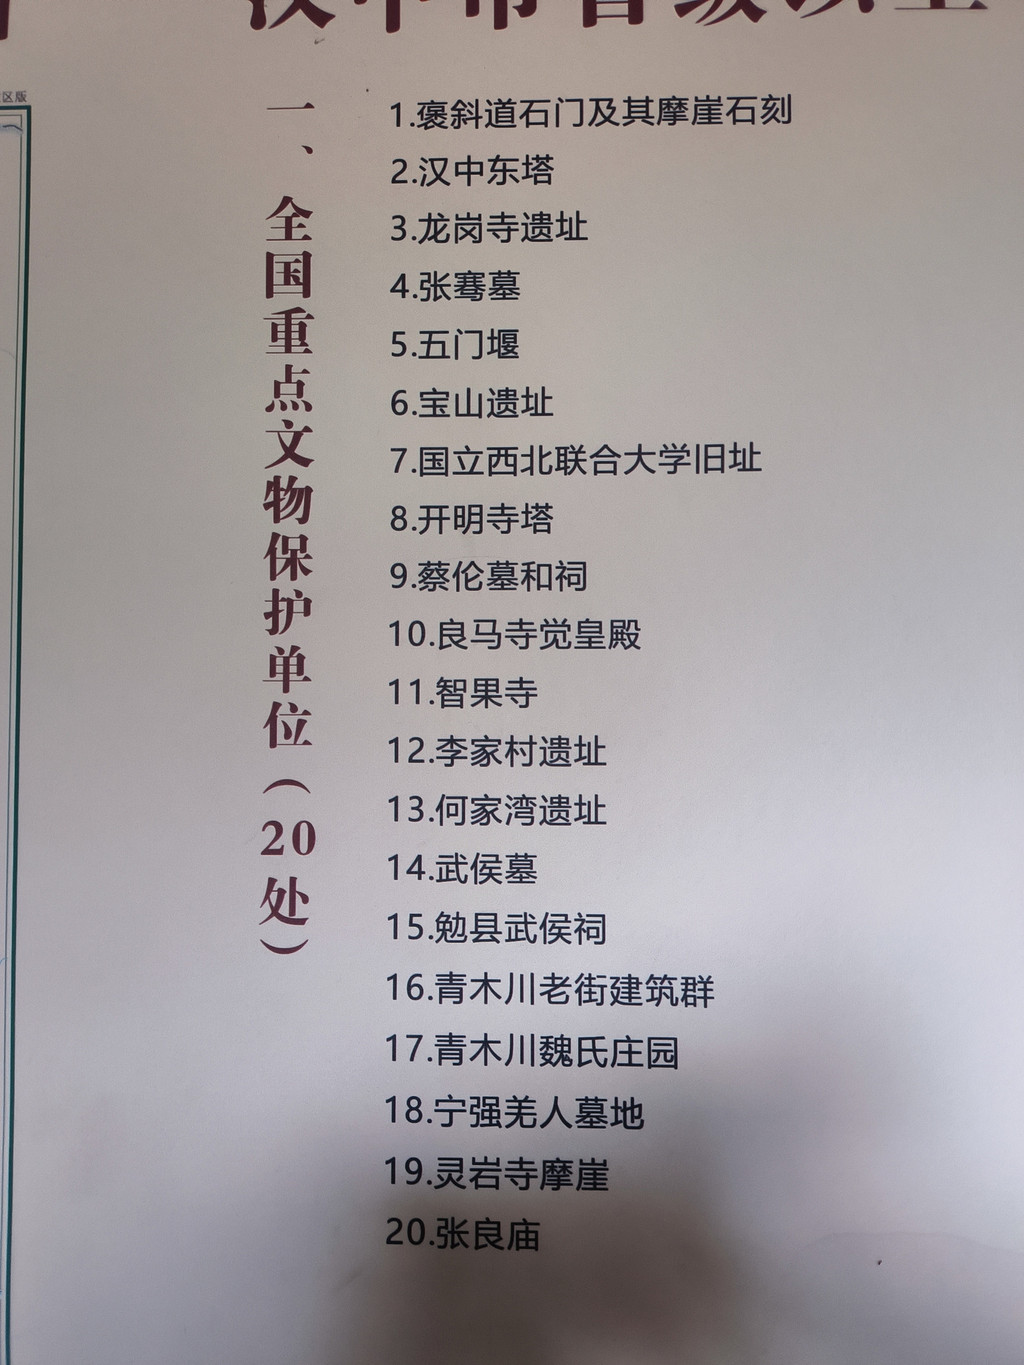 汉中市省级以上
区版
一、全国重点文物保护单位（20处）
1.褒斜道石门及其摩崖石刻
2.汉中东塔
3.龙岗寺遗址
4.张骞墓
5.五门堰
6.宝山遗址
7.国立西北联合大学旧址
8.开明寺塔
9.蔡伦墓和祠
10.良马寺觉皇殿
11.智果寺
12.李家村遗址
13.何家湾遗址
14.武侯墓
15.勉县武侯祠
16.青木川老街建筑群
17.青木川魏氏庄园
18.宁强羌人墓地
19.灵岩寺摩崖
20.张良庙